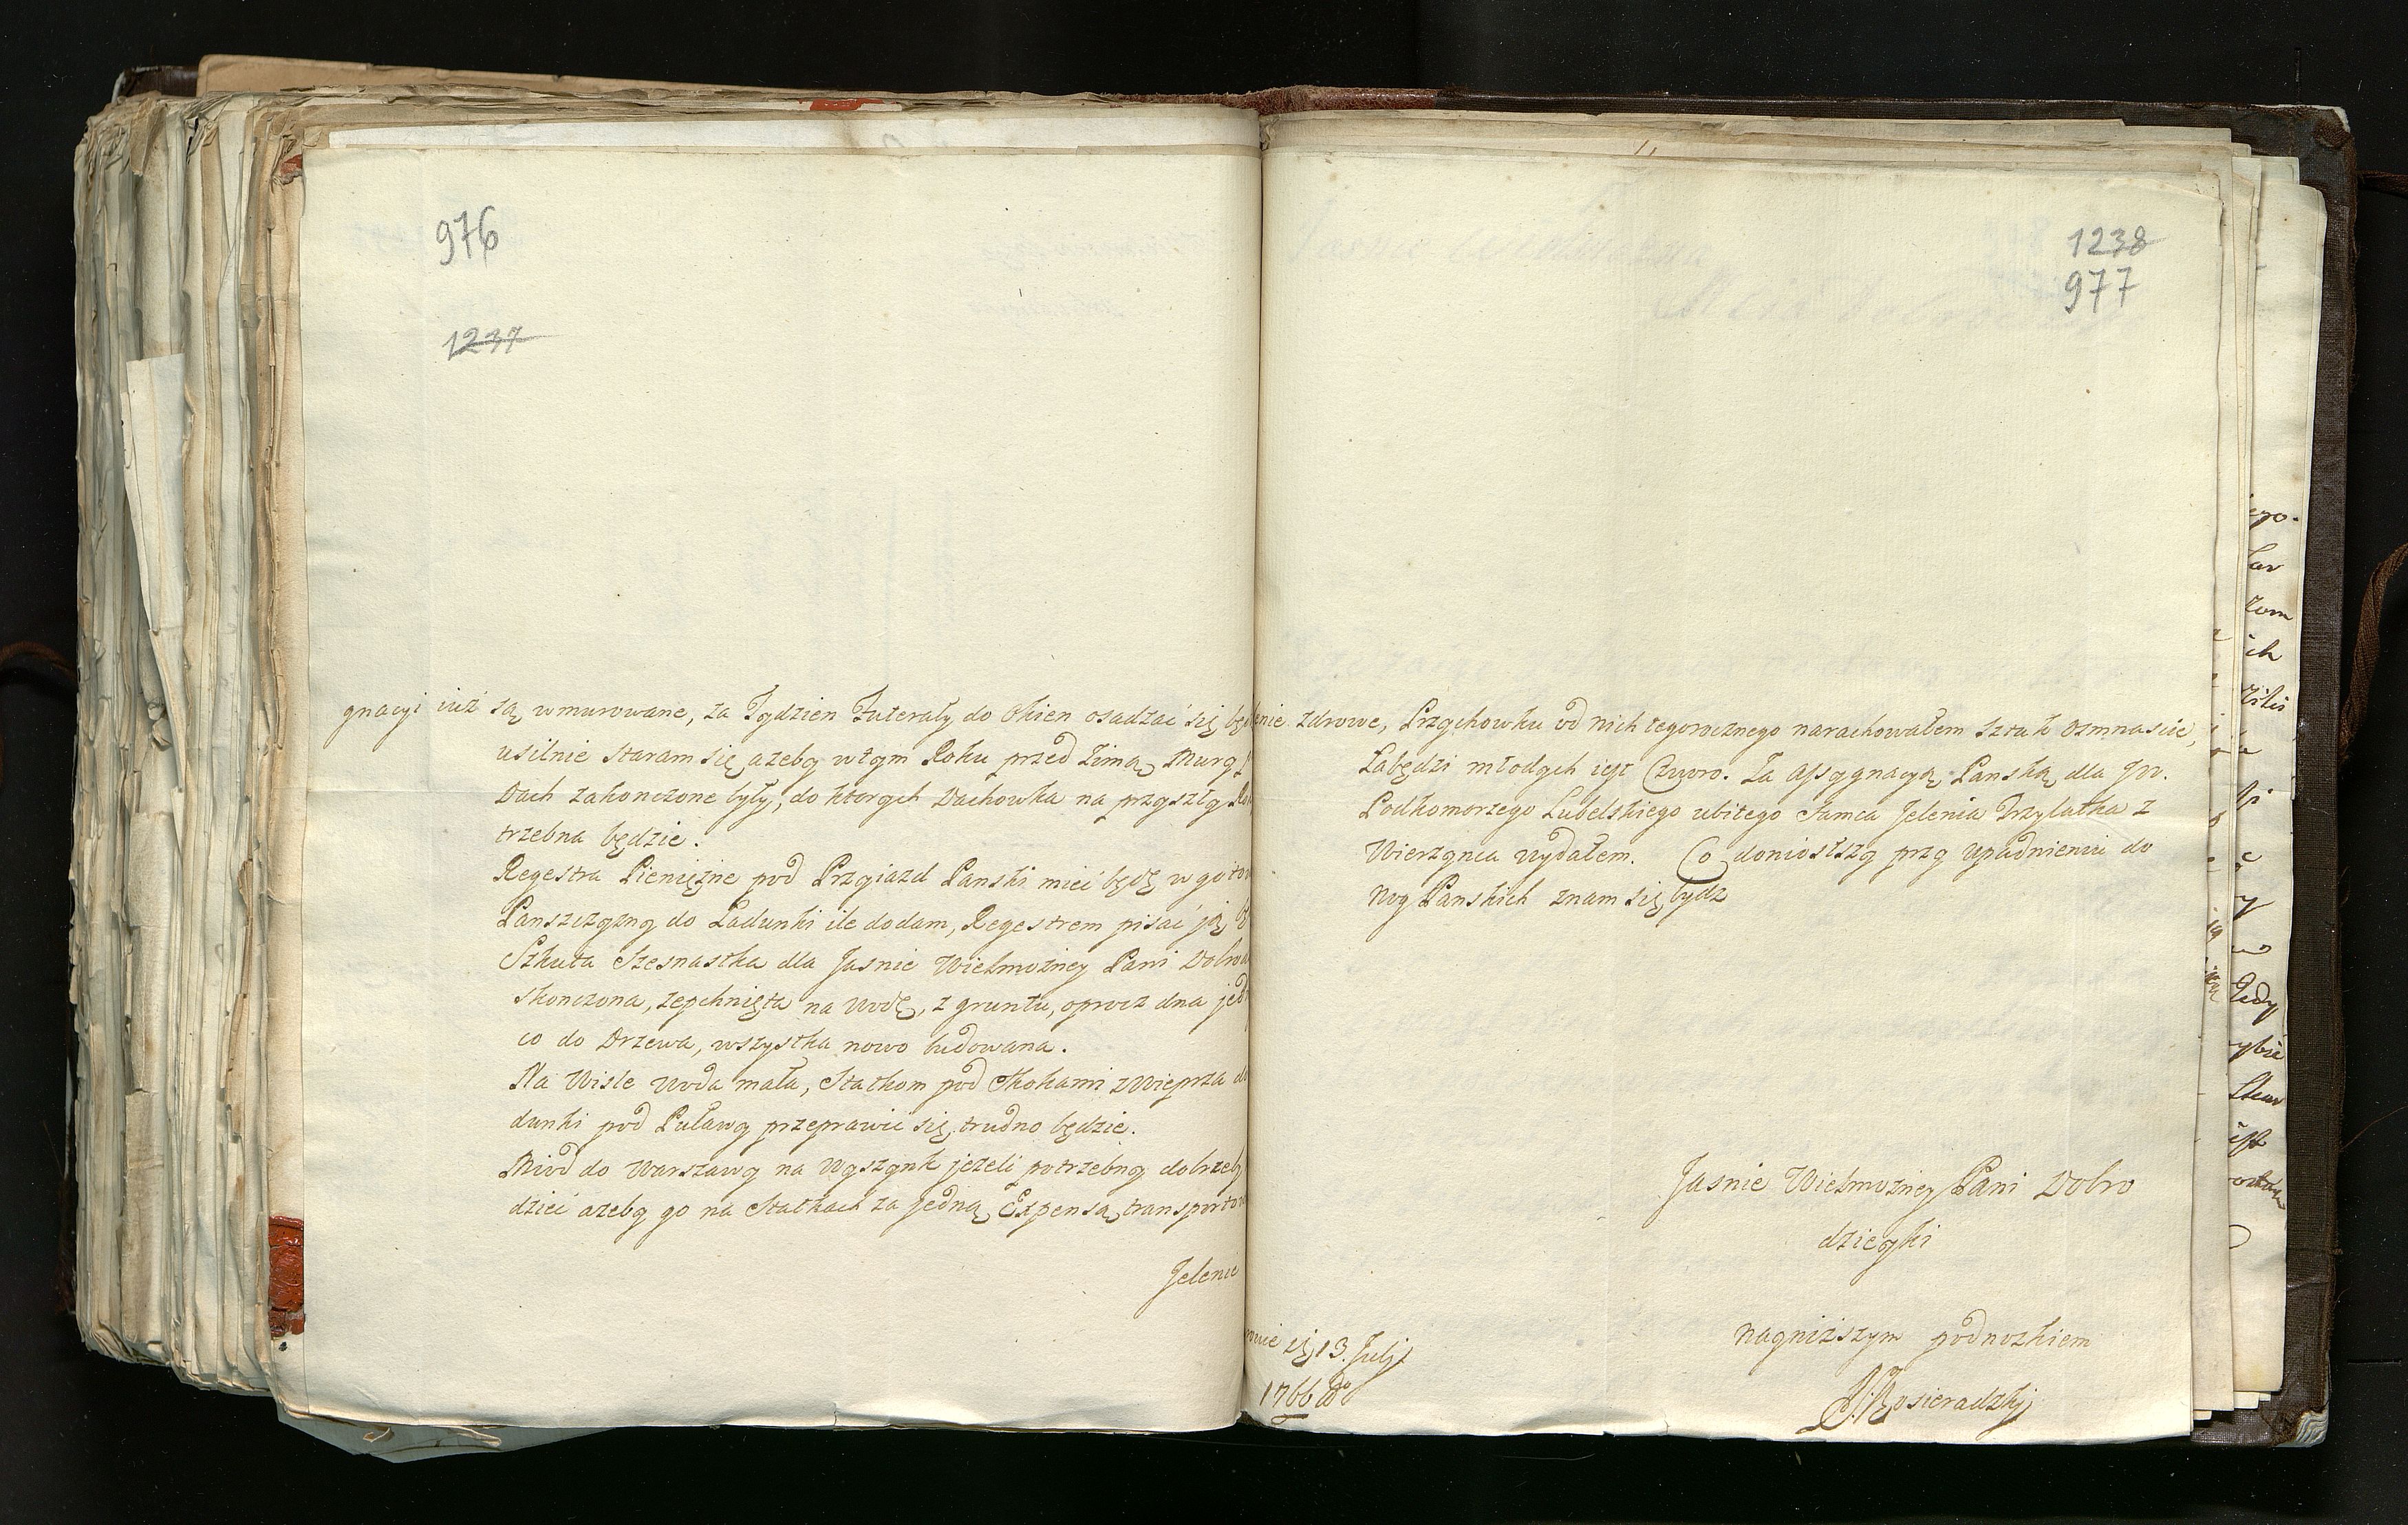 976
1237
gnacyi iuż są wmurowane, za Tydzien Futerały do Okien osadzać się bę
usilnie staram się azeby w tym Roku przed Zimą Mury
Dach zakonczone były, do ktorych Dachowka na przyszły
trzebna będzie.
Regestra Pieniężne pod Przyiazd Panski mieć będę w goto
Panszczyzny do Ładunki ile dodam, Regestrem pisać ją
Szkuta Szesnastka dla Jasnie Wielmożney Pani Dobro
skonczona, zepchnięta na wodę, z gruntu, oprocz dna
co do Drzewa, wszystka nowo budowana.
Na Wisle woda mała, Statkom pod Skokami z Wieprza
dunki pod Puławy przeprawić się trudno będzie.
Miod do Warszawy na Wyszynk jezeli potrzebny dobrzeby
dzieć azeby go na Statkach za jedną Expensą transporto
Jelenie
1238
977
zdrowe, Przychowku od nich tegorocznego narachowałem Sztuk osmnaście,
Łabędzi młodych jest Czworo. Za Assygnacyą Panską dla Jw.
Podkomorzego Lubelskiego ubitego Samca Jelenia Trzylatka z
Wierzynca wydałem. Co doniosłszy przy upadnieniu do
Nog Panskich znam się bydz
Jasnie Wielmożney Pani Dobro
dzieyki
nayniższym podnozkiem
Kosieradzkj
13. Julij
1766 do